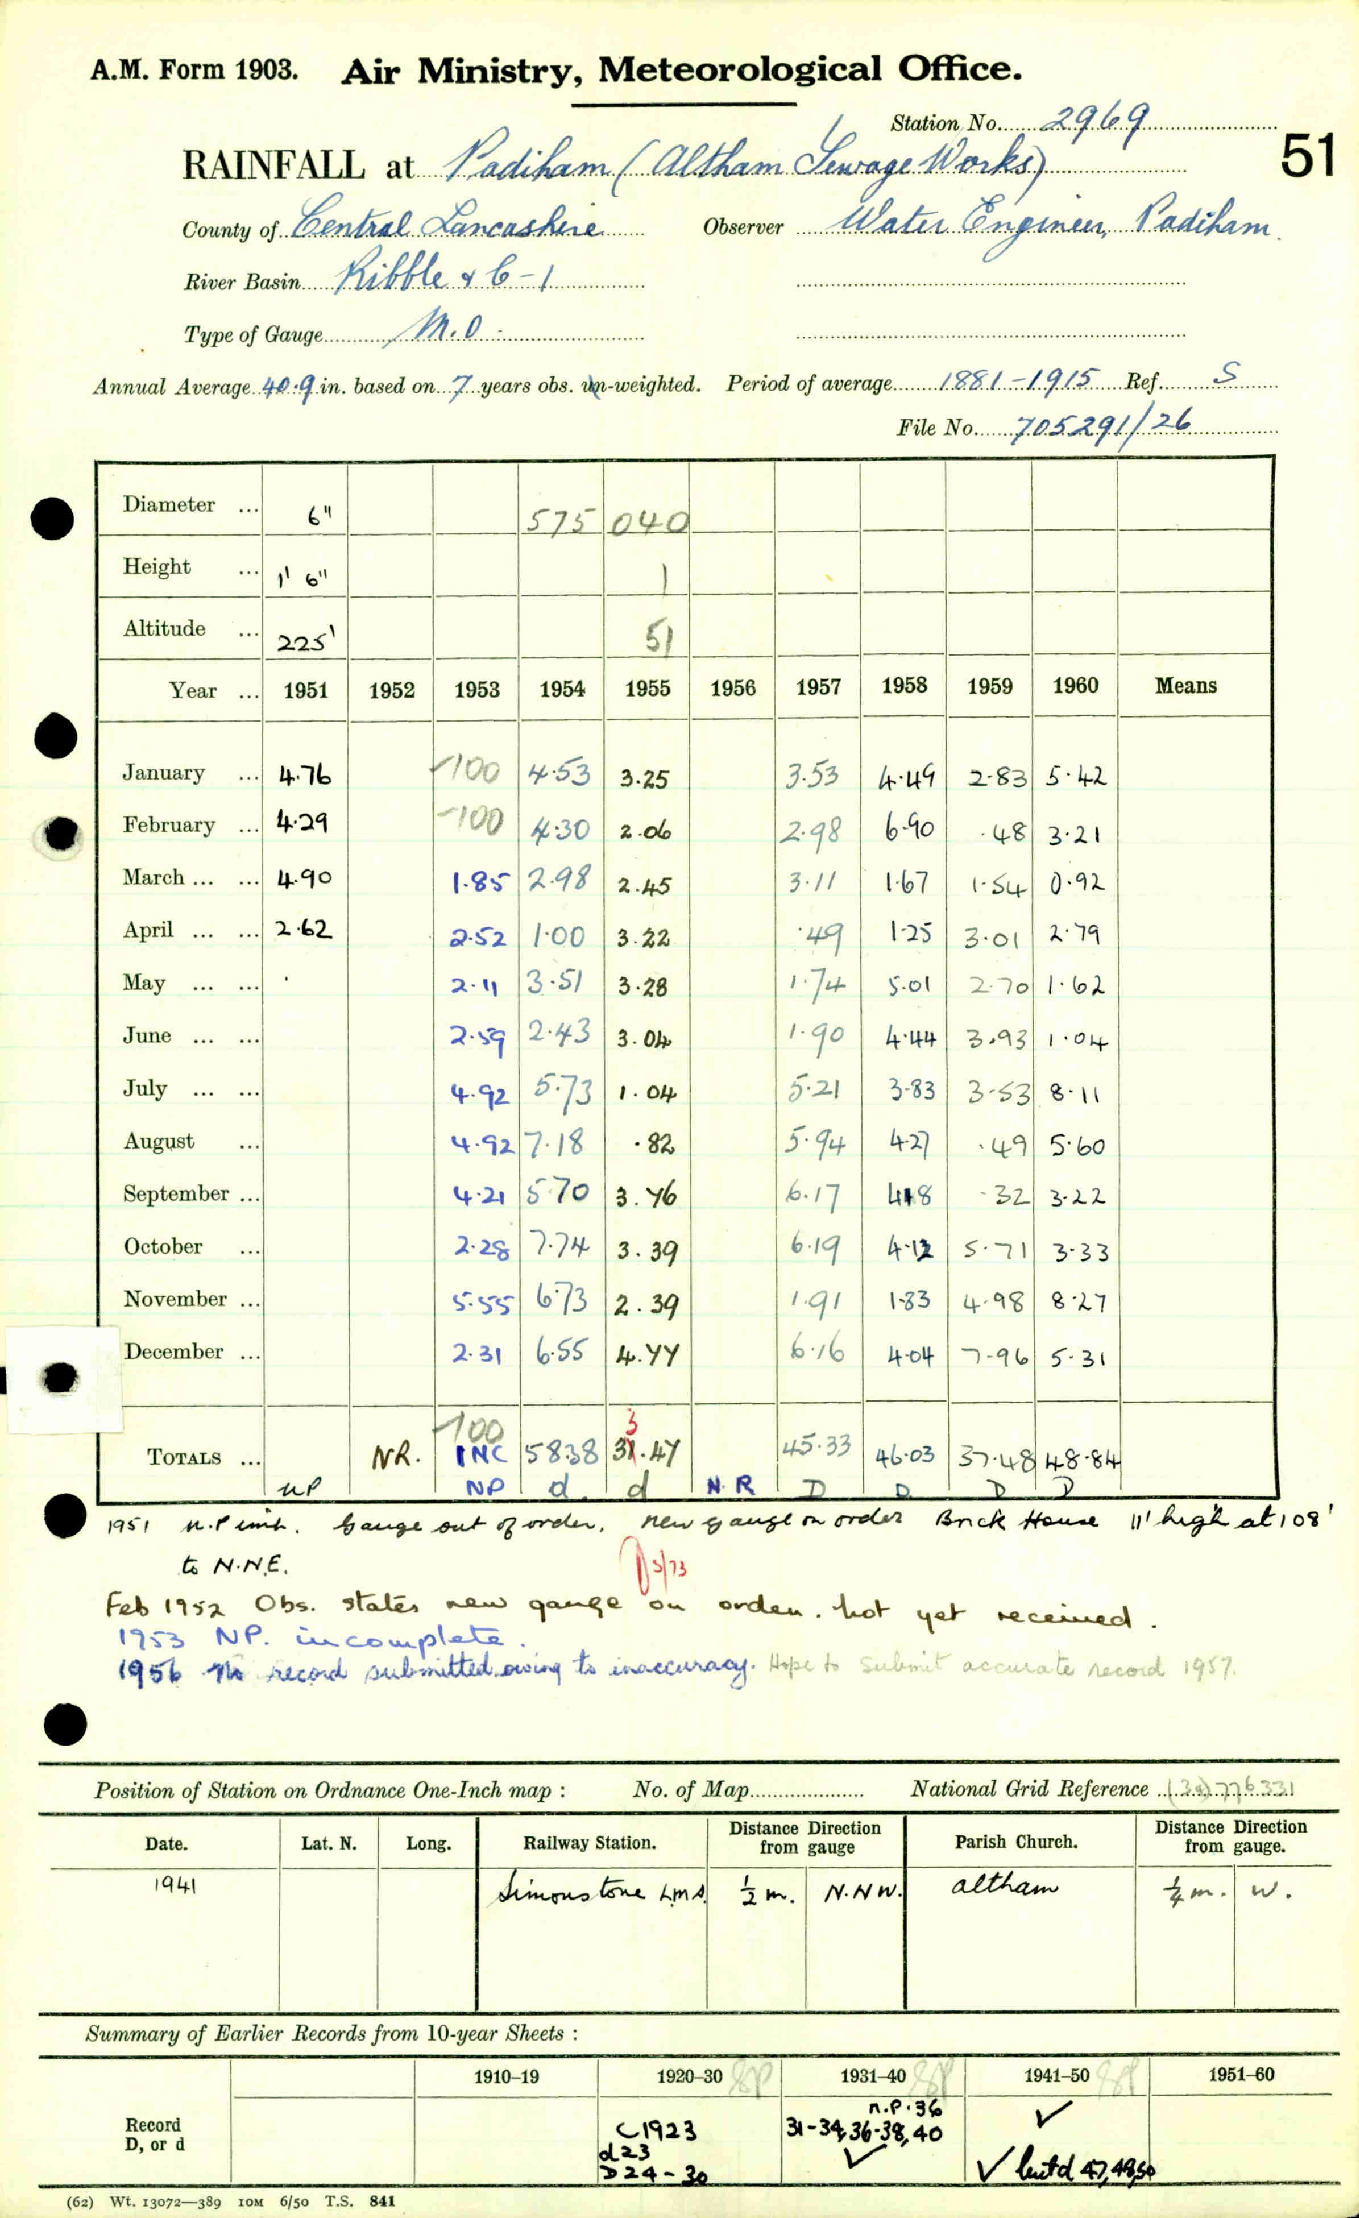 A.M. Form 1903. Air Ministry, Meteorological Office.
Station No. 2969
51
RAINFALL at Padiham (Altham Sewage Works)
County of Central Lancashire Observer Water Engineer, Padiham.
River Basin Ribble & C-1
Type of Gauge M.O.
Annual Average 40.9 in. based on 7 years obs. un-weighted. Period of average 1881-1915 Ref. S
File No. 705291/26
Diameter ... 6" 575 040
Height ... 1' 6" 1
Altitude ... 225' 51
Year ... 1951 1952 1953 1954 1955 1956 1957 1958 1959 1960 Means
January ... 4.76 -100 4.53 3.25 3.53 4.49 2.83 5.42
February ... 4.29 -100 4.30 2.06 2.98 6.90 .48 3.21
March ... ... 4.90 1.85 2.98 2.45 3.11 1.67 1.54 0.92
April ... ... 2.62 2.52 1.00 3.22 .49 1.25 3.01 2.79
May ... ... . 2.11 3.51 3.28 1.74 5.01 2.70 1.62
June ... ... 2.59 2.43 3.04 1.90 4.44 3.93 1.04
July ... ... 4.92 5.73 1.04 5.21 3.83 3.53 8.11
August ... 4.92 7.18 .82 5.94 4.27 .49 5.60
September ... 4.21 5.70 3.76 6.17 4.18 .32 3.22
October ... 2.28 7.74 3.39 6.19 4.12 5.71 3.33
November ... 5.55 6.73 2.39 1.91 1.83 4.98 8.27
December ... 2.31 6.55 4.77 6.16 4.04 7.96 5.31
-100 3
TOTALS ... NR. INC 58.38 31.47 45.33 46.03 37.48 48.84
NP NP d. d N.R D D D D
1951 N.P. Gauge out of order, new gauge on order Brick House 11' high at 108'
to N.N.E. 3/73
Feb 1952 Obs. states new gauge on order. not yet received.
1953 NP. incomplete.
1956 No record submitted owing to inaccuracy. Hope to submit accurate record 1957.
Position of Station on Ordnance One-Inch map : No. of Map National Grid Reference (34)776331
Date. Lat. N. Long. Railway Station. Distance Direction from gauge Parish Church. Distance Direction from gauge.
1941 Simonstone L.M.S. ½ m. N.N.W. Altham ¼ m. W.
Summary of Earlier Records from 10-year Sheets :
1910–19 1920–30 1931–40 1941–50 1951–60
n.P. 36 ✓
Record C1923 31-34, 36-38, 40
D, or d d23 ✓
D24-30 ✓ but d 47,49,50
(62) Wt. 13072—389 10M 6/50 T.S. 841